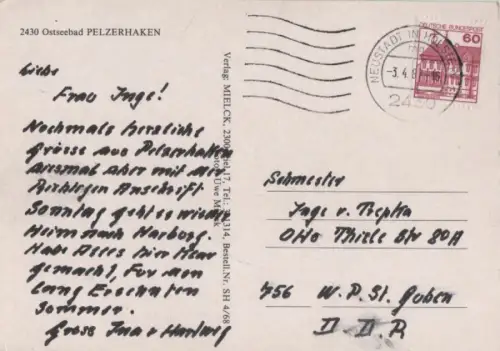 2430 Ostseebad PELZERHAKEN
Liebe
Frau Inge!
Nochmals herzliche
Grüsse aus Pelzerhaken
diesmal aber mit der
Richtigen Anschrift
Sonntag geht es wieder
Heim nach Harburg.
Habe Alles hier
gemacht, Für den
lang Ersehnten
Sommer.
Gruss Ina + Hartwig
Verlag: MIELCK, 2300 Kiel 17, Tel.: 314, Bestell.Nr. SH 4/68
Foto: Uwe Mielck
DEUTSCHE BUNDESPOST
60
NEUSTADT IN HOLSTEIN
-3.4.8
2430
Schwester
Inge v. Trepka
Otto Thiele Str 80A
756 W. P. St. Guben
D. D. R